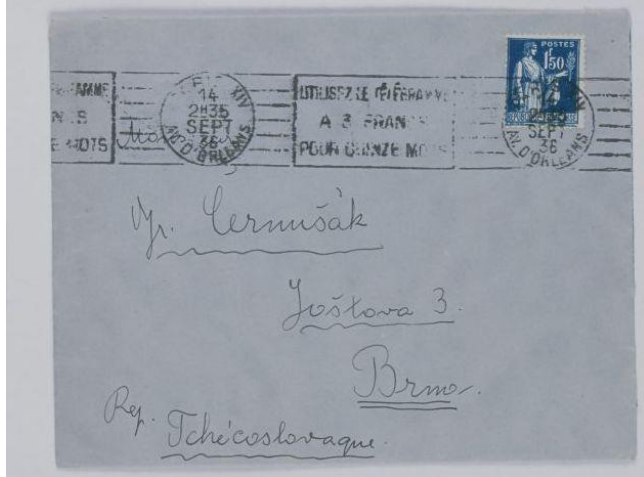 POSTES
1F50
14
2H35
SEPT
36
AV. D'ORLEANS
UTILISEZ LE TÉLÉGRAMME
A 3 FRANCS
POUR QUINZE MOTS
XIV
14
2H35
SEPT
36
AV. D'ORLEANS
MOTS
Černušák
Joštova 3.
Brno.
Rep.
Tchécoslovaque.